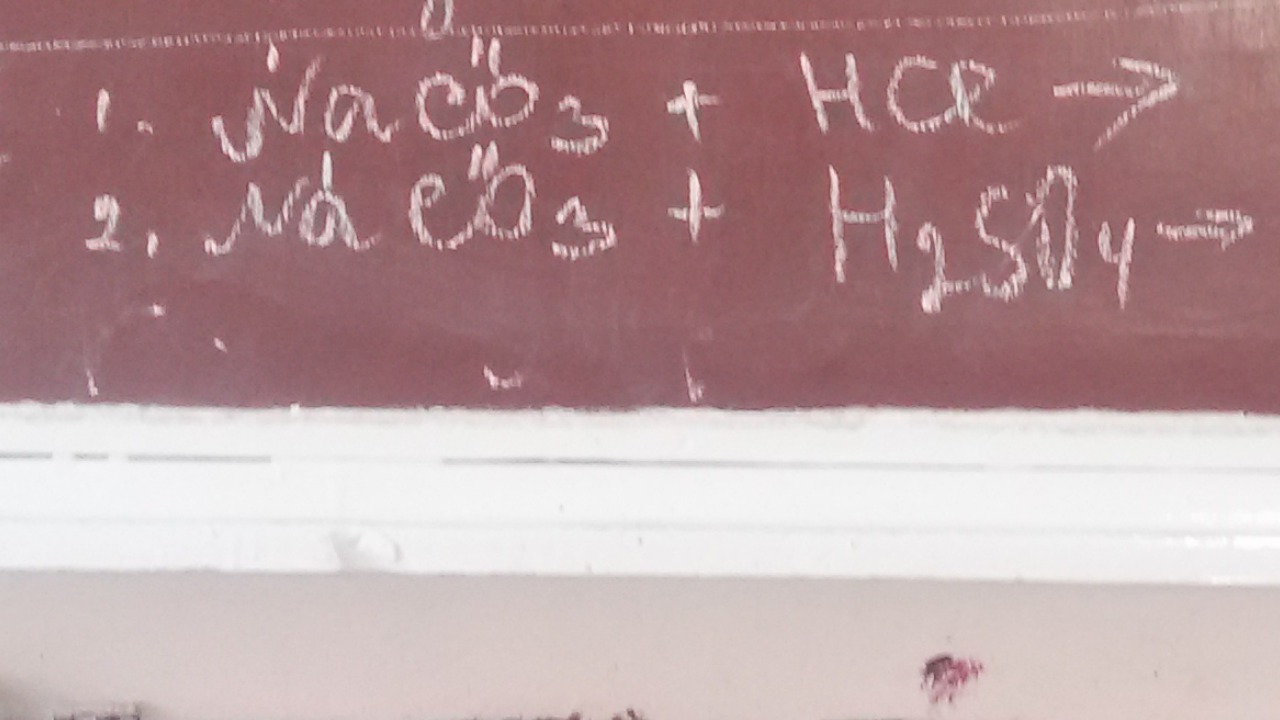 1. NaCO₃ + HCl →
2. NaCO₃ + H₂SO₄ →